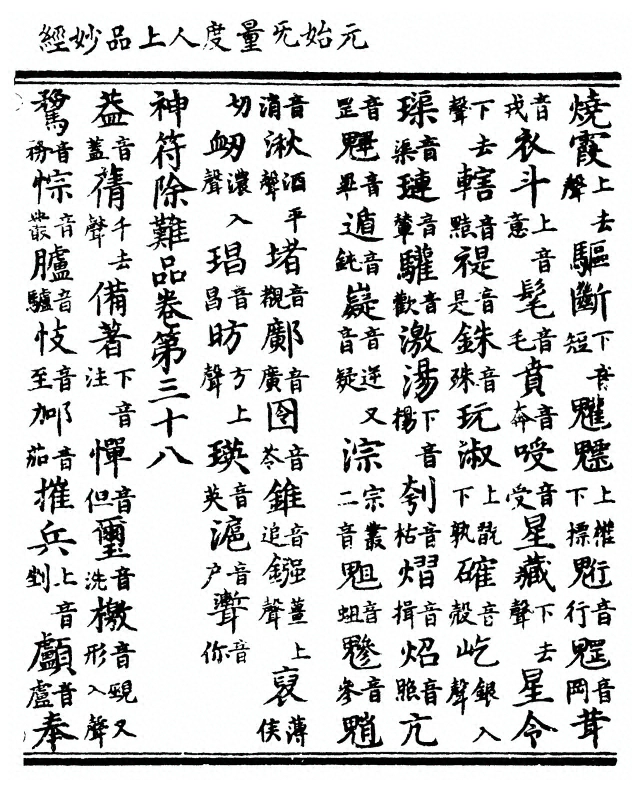 元始旡量度人上品妙經
燒霞上去聲驅斷下音短魋魒上權下標䰢音行䰡音岡茸
音戎衣斗上音意髦音毛賁音奔㖟音受星藏下去聲星令
下去聲轄音黠禔音是銖音殊玩淑上翫下孰確音殻屹銀入聲
璖音渠璉音輦驩音歡激湯下音楊刳音枯熠音揖炤音照亢
音罡魓音畢遁音鈍嶷音逆又音疑淙宗叢二音音蛆音參魈
音消湫酒平聲堵音觀鄺音廣囹音苓錐音追鏹薑上聲裒薄侯
切衂濃入聲琩音昌昉方上聲瑛音英滬音户聻音你
神符除難品卷第三十八
葢音蓋蒨千去聲備著下音注憚音但璽音洗檄音覡又形入聲
騖音務悰音叢臚音驢忮音至音茄摧兵上音剉顱音盧奉